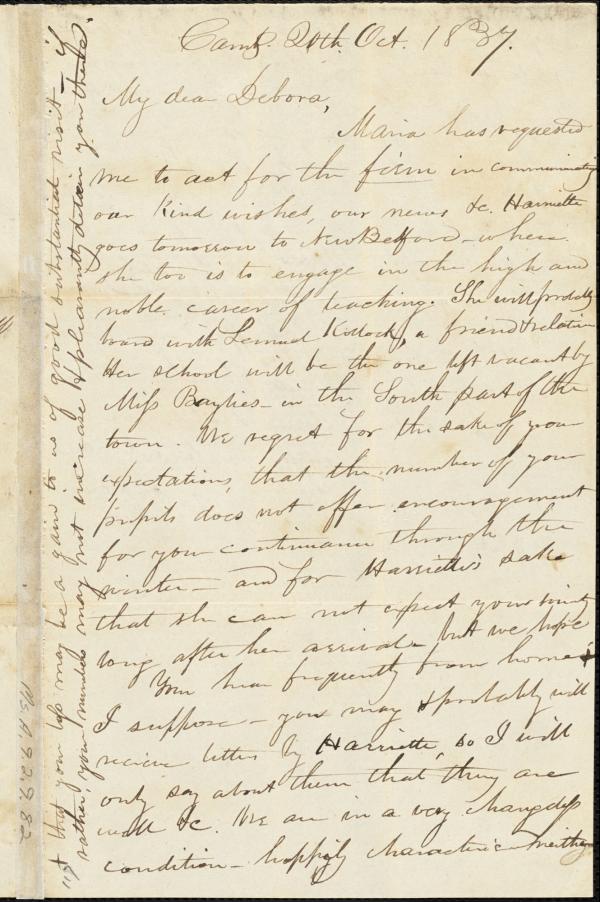 Camb. 20th. Oct. 1837.
My dear Debora,
Maria has requested
me to act for the firm in communicating
our kind wishes, our news &c. Harriette
goes tomorrow to New Bedford - where
she too is to engage in the high and
noble career of teaching. She will probably
board with Lemuel Kollock, a friend & relation
Her school will be the one left vacant by
Miss Baylies - in the South part of the
town. We regret for the sake of your
expectations, that the number of your
pupils does not offer encouragement
for your continuance through the
winter - and for Harriette's sake
that she can not expect your society
long after her arrival - but we hope
You hear frequently from home
I suppose - you may & probably will
receive letters by Harriette, so I will
only say about them that they are
well &c. We are in a very changeless
condition - happily characterized neither
that your loss may be a gain to us of good substantial visit - if
rather, your numbers may not increase & pleasantly detain you there.
Ms.A.9.2.9.82